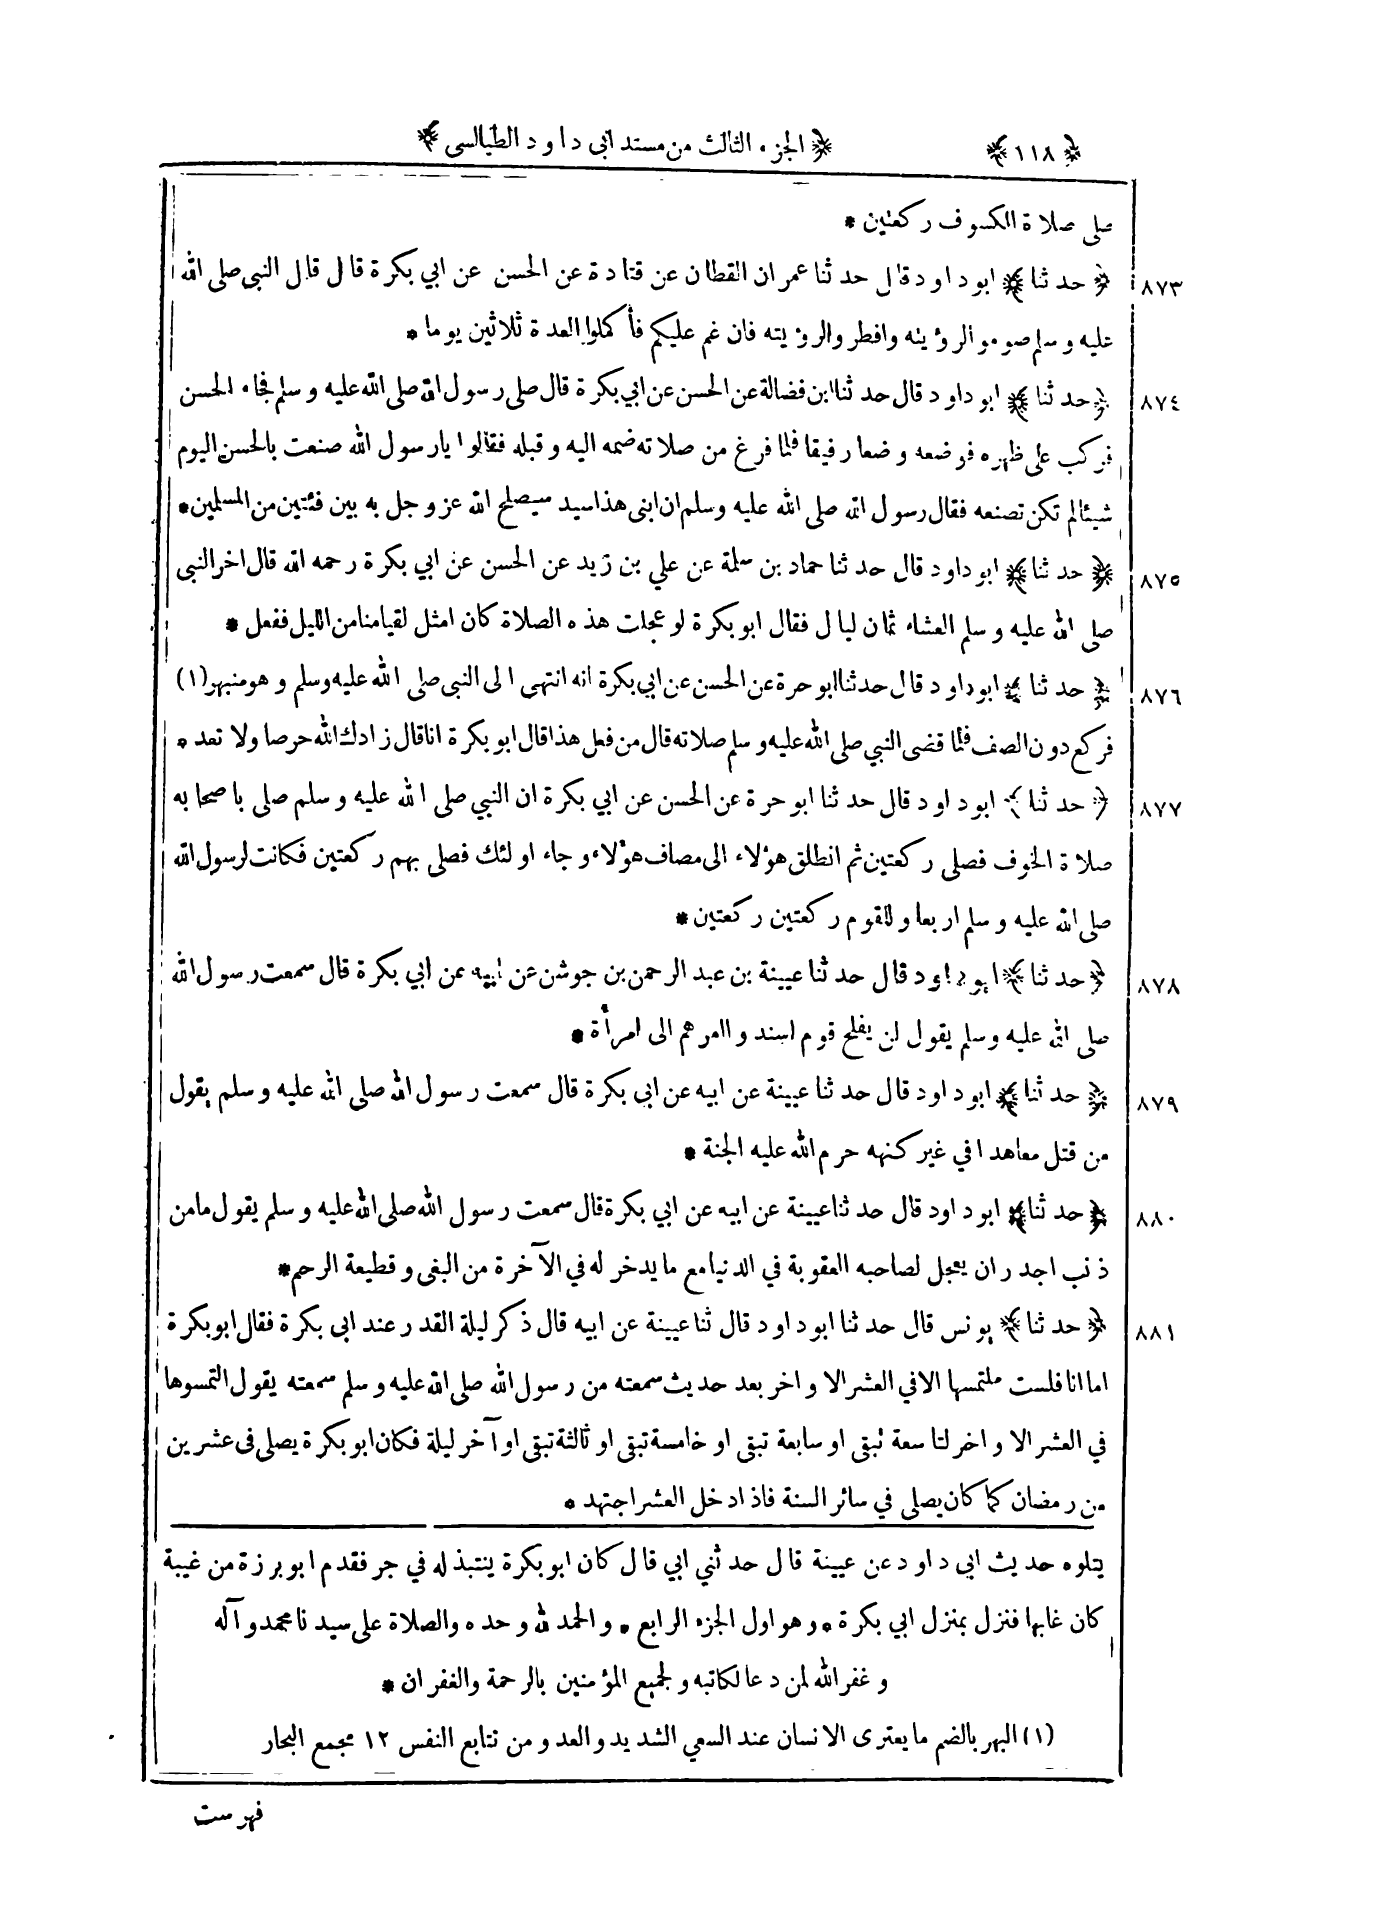 ﴿ ١١٨ ﴾ ﴿ الجزء الثالث من مسند ابى داود الطيالسى ﴾
صلى صلاة الكسوف ركعتين *
٨٧٣ ﴿ حدثنا ﴾ ابوداود قال حدثنا عمران القطان عن قتادة عن الحسن عن ابي بكرة قال قال النبي صلى الله
عليه وسلم صوموا لرؤيته وافطروا لرؤيته فان غم عليكم فأكملوا العدة ثلاثين يوما *
٨٧٤ ﴿ حدثنا ﴾ ابوداود قال حدثنا ابن فضالة عن الحسن عن ابي بكرة قال صلى رسول الله صلى الله عليه وسلم فجاء الحسن
فركب على ظهره فوضعه وضعا رفيقا فلما فرغ من صلاته ضمه اليه وقبله فقالوا يارسول الله صنعت بالحسن اليوم
شيئالم تكن تصنعه فقال رسول الله صلى الله عليه وسلم ان ابنى هذا سيد سيصلح الله عزوجل به بين فئتين من المسلمين *
٨٧٥ ﴿ حدثنا ﴾ ابوداود قال حدثنا حماد بن سلمة عن علي بن زيد عن الحسن عن ابي بكرة رحمه الله قال اخر النبى
صلى الله عليه وسلم العشاء ثمان ليال فقال ابوبكرة لو عجلت هذه الصلاة كان امثل لقيامنا من الليل ففعل *
٨٧٦ ﴿ حدثنا ﴾ ابوداود قال حدثنا ابو حرة عن الحسن عن ابي بكرة انه انتهى الى النبى صلى الله عليه وسلم وهو منبهر (١)
فركع دون الصف فلما قضى النبي صلى الله عليه وسلم صلاته قال من فعل هذا قال ابوبكرة انا قال زادك الله حرصا ولا تعد *
٨٧٧ ﴿ حدثنا ﴾ ابوداود قال حدثنا ابو حرة عن الحسن عن ابي بكرة ان النبي صلى الله عليه وسلم صلى باصحابه
صلاة الخوف فصلى ركعتين ثم انطلق هؤلاء الى مصاف هؤلاء وجاء اولئك فصلى بهم ركعتين فكانت لرسول الله
صلى الله عليه وسلم اربعا وللقوم ركعتين ركعتين *
٨٧٨ ﴿ حدثنا ﴾ ابوداود قال حدثنا عيينة بن عبد الرحمن بن جوشن عن ابيه عن ابي بكرة قال سمعت رسول الله
صلى الله عليه وسلم يقول لن يفلح قوم اسندوا امرهم الى امرأة *
٨٧٩ ﴿ حدثنا ﴾ ابوداود قال حدثنا عيينة عن ابيه عن ابى بكرة قال سمعت رسول الله صلى الله عليه وسلم يقول
من قتل معاهدا في غير كنهه حرم الله عليه الجنة *
٨٨٠ ﴿ حدثنا ﴾ ابوداود قال حدثنا عيينة عن ابيه عن ابي بكرة قال سمعت رسول الله صلى الله عليه وسلم يقول مامن
ذنب اجدر ان يعجل لصاحبه العقوبة في الدنيا مع مايدخر له في الآخرة من البغى وقطيعة الرحم *
٨٨١ ﴿ حدثنا ﴾ يونس قال حدثنا ابوداود قال ثنا عيينة عن ابيه قال ذكر ليلة القدر عند ابى بكرة فقال ابوبكرة
اما انا فلست ملتمسها الا في العشر الاواخر بعد حديث سمعته من رسول الله صلى الله عليه وسلم سمعته يقول التمسوها
في العشر الاواخر لتاسعة تبقى او سابعة تبقى او خامسة تبقى او ثالثة تبقى او آخر ليلة فكان ابوبكرة يصلى فى عشرين
من رمضان كما كان يصلى في سائر السنة فاذا دخل العشر اجتهد *
يتلوه حديث ابى داود عن عيينة قال حدثني ابي قال كان ابوبكرة ينتبذ له في جر فقدم ابوبرزة من غيبة
كان غابها فنزل بمنزل ابي بكرة * وهو اول الجزء الرابع * والحمد لله وحده والصلاة على سيدنا محمد وآله
وغفر الله لمن دعا لكاتبه ولجميع المؤمنين بالرحمة والغفران *
(١) البهر بالضم مايعترى الانسان عند السعي الشديد والعدو من تتابع النفس ١٢ مجمع البحار
فهرست